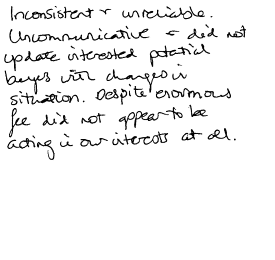 Inconsistent + unreliable.
Uncommunicative - did not
update interested potential
buyers with changes in
situation. Despite enormous
fee did not appear to be
acting in our interests at all.